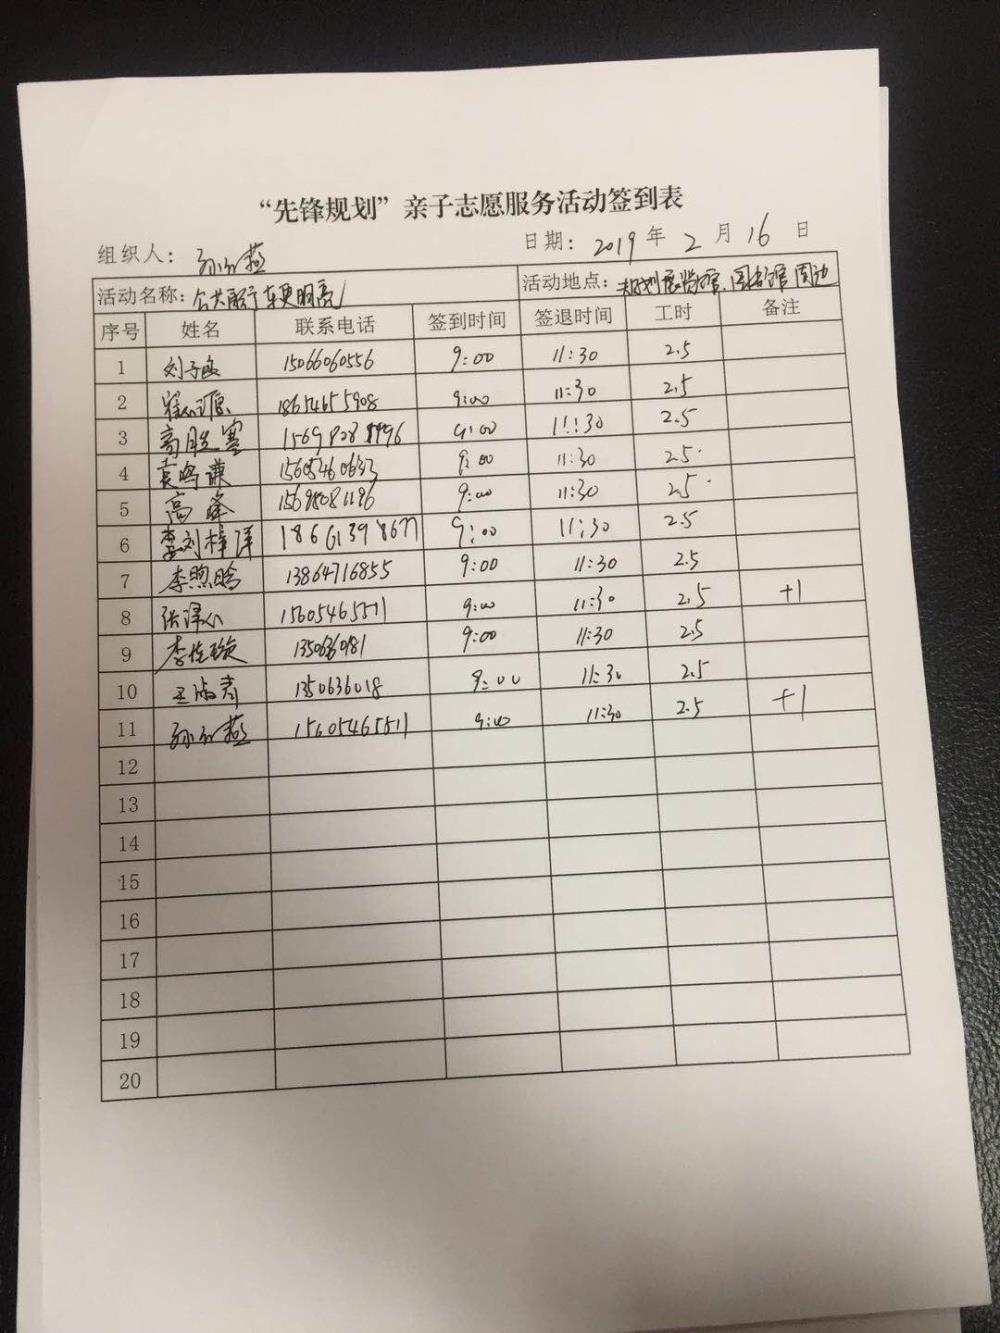 “先锋规划”亲子志愿服务活动签到表
组织人: 孙 燕 日期: 2019 年 2 月 16 日
活动名称: 公共 车更明亮 活动地点: 规划展览馆、图书馆周边
序号 姓名 联系电话 签到时间 签退时间 工时 备注
1 刘子 15066060556 9:00 11:30 2.5
2 源 18654655908 9:00 11:30 2.5
3 高胜寒 1569828 9:00 11:30 2.5
4 袁鸣谦 15605460633 9:00 11:30 2.5
5 高峰 15698081196 9:00 11:30 2.5
6 李刘梓洋 18661398677 9:00 11:30 2.5
7 李煦晗 13864716855 9:00 11:30 2.5
8 张泽 15605465511 9:00 11:30 2.5 +1
9 李佳璇 9:00 11:30 2.5
10 王海青 1350636018 9:00 11:30 2.5
11 孙 燕 15605465511 9:00 11:30 2.5 +1
12
13
14
15
16
17
18
19
20